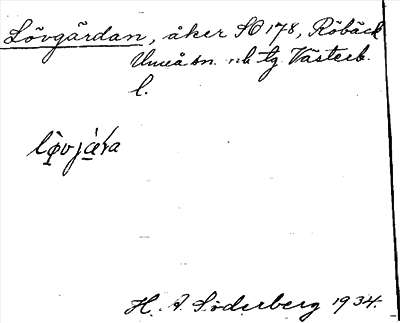 Lövgärdan, åker SO 178, Röbäck
Umeå sn. tg Västerb.
l.
H. A. Söderberg 1934.